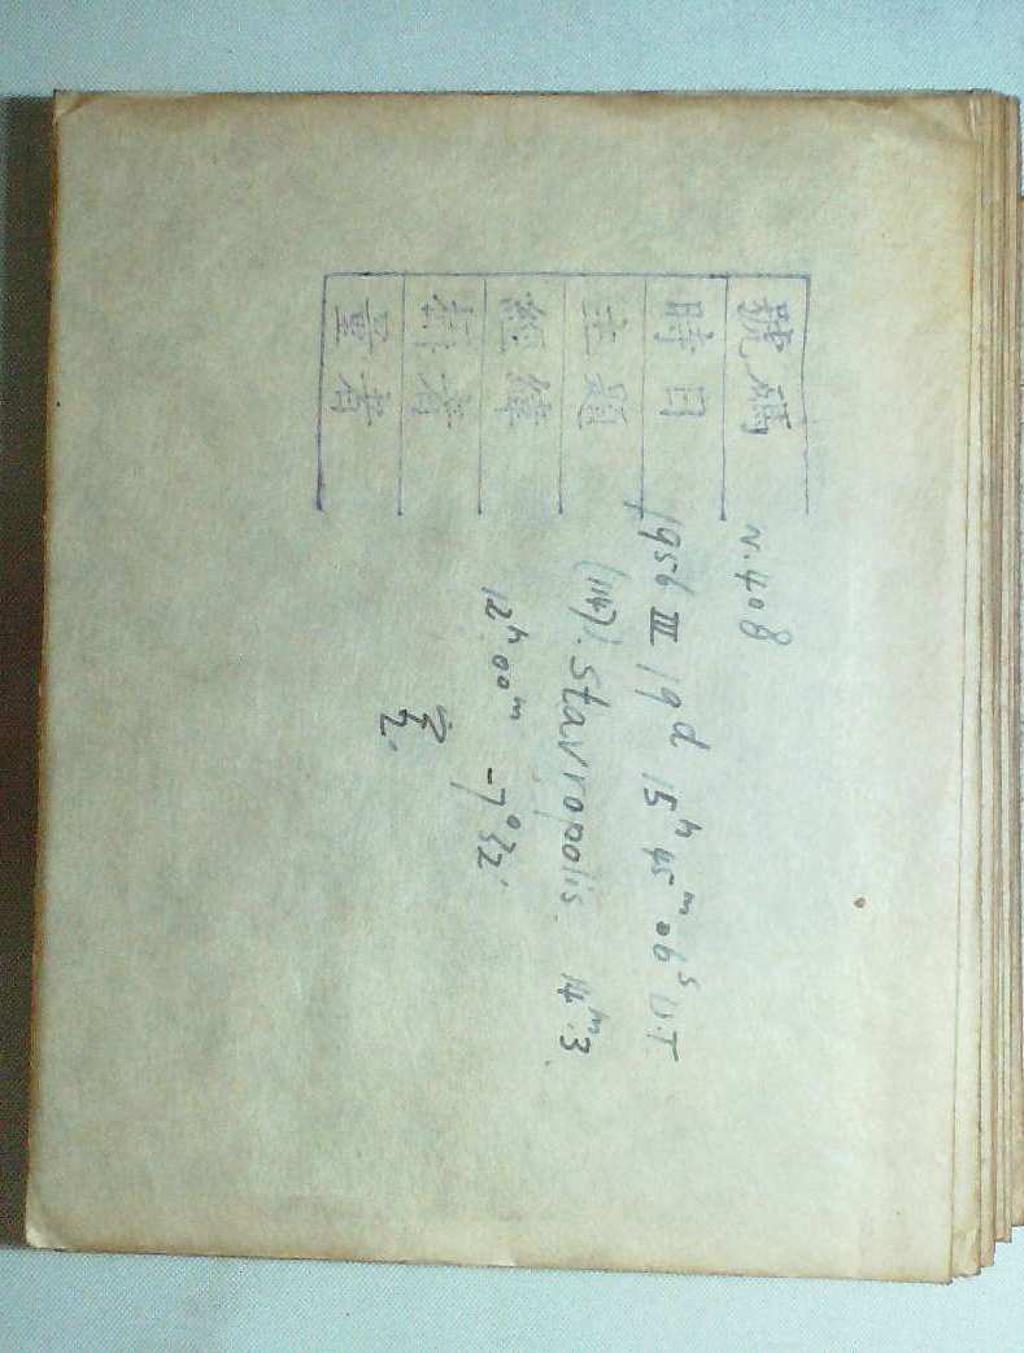 號碼 N.408
時日 1956 III 19ᵈ 15ʰ 45ᵐ 06ˢ U.T
主題 (1147). Stavropolis. 14ᵐ.3.
經緯 12ʰ00ᵐ -7°32'.
者
者